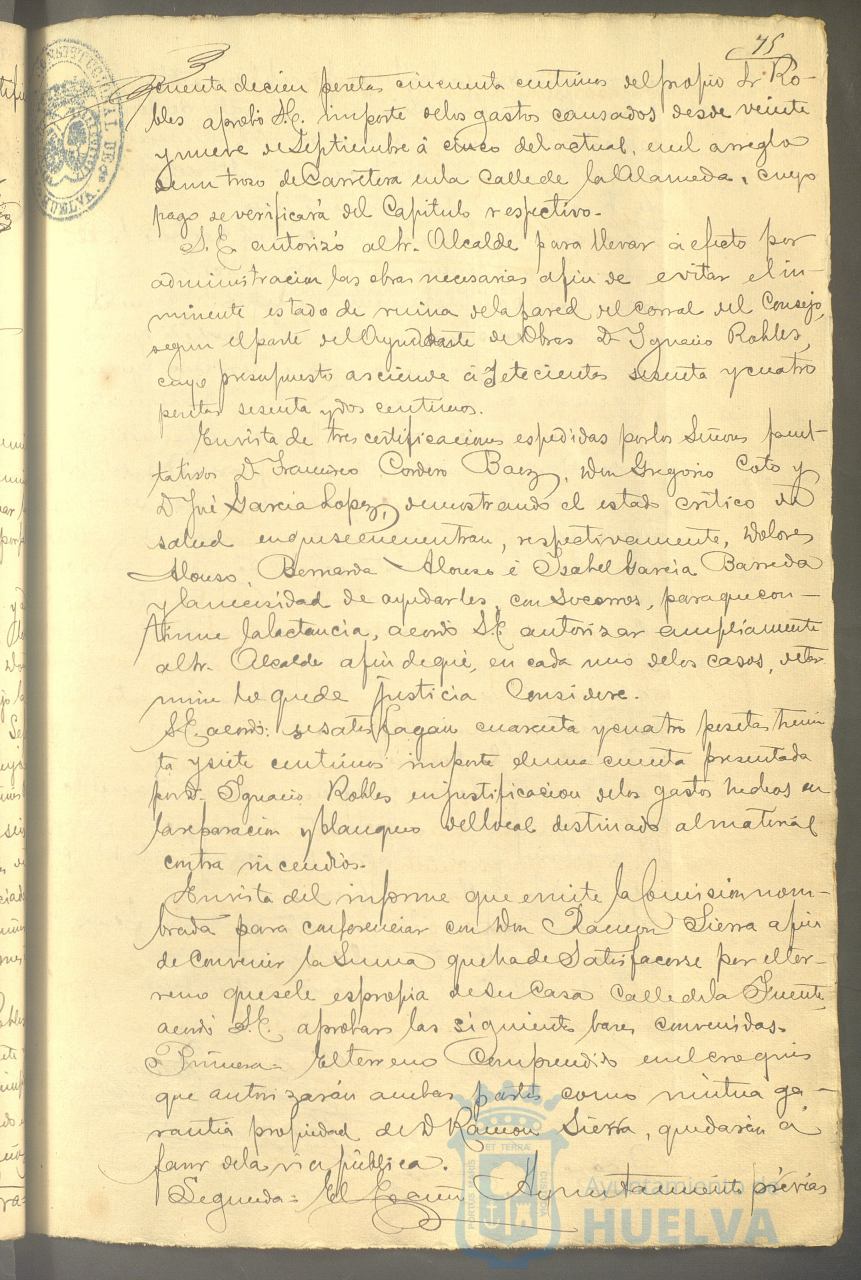 75
cuenta de cien pesetas cincuenta centimos del propio Sr Ro-
bles aprobó S.E. importe delos gastos causados desde veinte
y nueve de Septiembre á cinco del actual, en el arreglo
de un trozo de Carretera en la Calle de la Alameda, cuyo
pago se verificará del Capitulo respectivo.
S.E. autorizó al Sr. Alcalde para llevar á efecto por
administracion las obras necesarias afin de evitar el in-
minente estado de ruina de la pared del corral del Consejo,
segun el parte del Ayudante de Obras D. Ignacio Robles,
cuyo presupuesto asciende á setecientas sesenta y cuatro
pesetas sesenta y dos centimos.
En vista de tres certificaciones espedidas por los Señores facul-
tativos D. Francisco Cordero Baez, Don Gregorio Coto y
D. José Garcia Lopez, demostrando el estado critico de
salud en que se encuentran, respectivamente, Dolores
Alonso, Bernarda Alonso é Isabel Garcia Barreda
y la necesidad de ayudarles, con socorros, para que con-
tinue la lactancia, acordó S.E. autorizar ampliamente
al Sr. Alcalde afin de que, en cada uno de los casos, deter-
mine lo que de justicia considere.
S.E. acordó: se satisfagan cuarenta y cuatro pesetas trein-
ta y siete centimos importe de una cuenta presentada
por D. Ignacio Robles en justificacion de los gastos hechos en
la reparacion y blanqueo del local destinado al material
contra incendios.
En vista del informe que emite la Comision nom-
brada para conferenciar con Don Ramon Sierra afin
de convenir la suma que ha de satisfacerse por el ter-
reno que se le espropia de su Casa Calle de la Fuente,
acordó S.E. aprobar las siguientes bases convenidas.
Primera = El terreno comprendido en el croquis
que autorizarán ambas partes como mútua ga-
rantia propiedad de D. Ramon Sierra, quedará á
favor de la via pública.
Segunda = El Excmo Ayuntamiento prévias
Ayuntamiento de
HUELVA